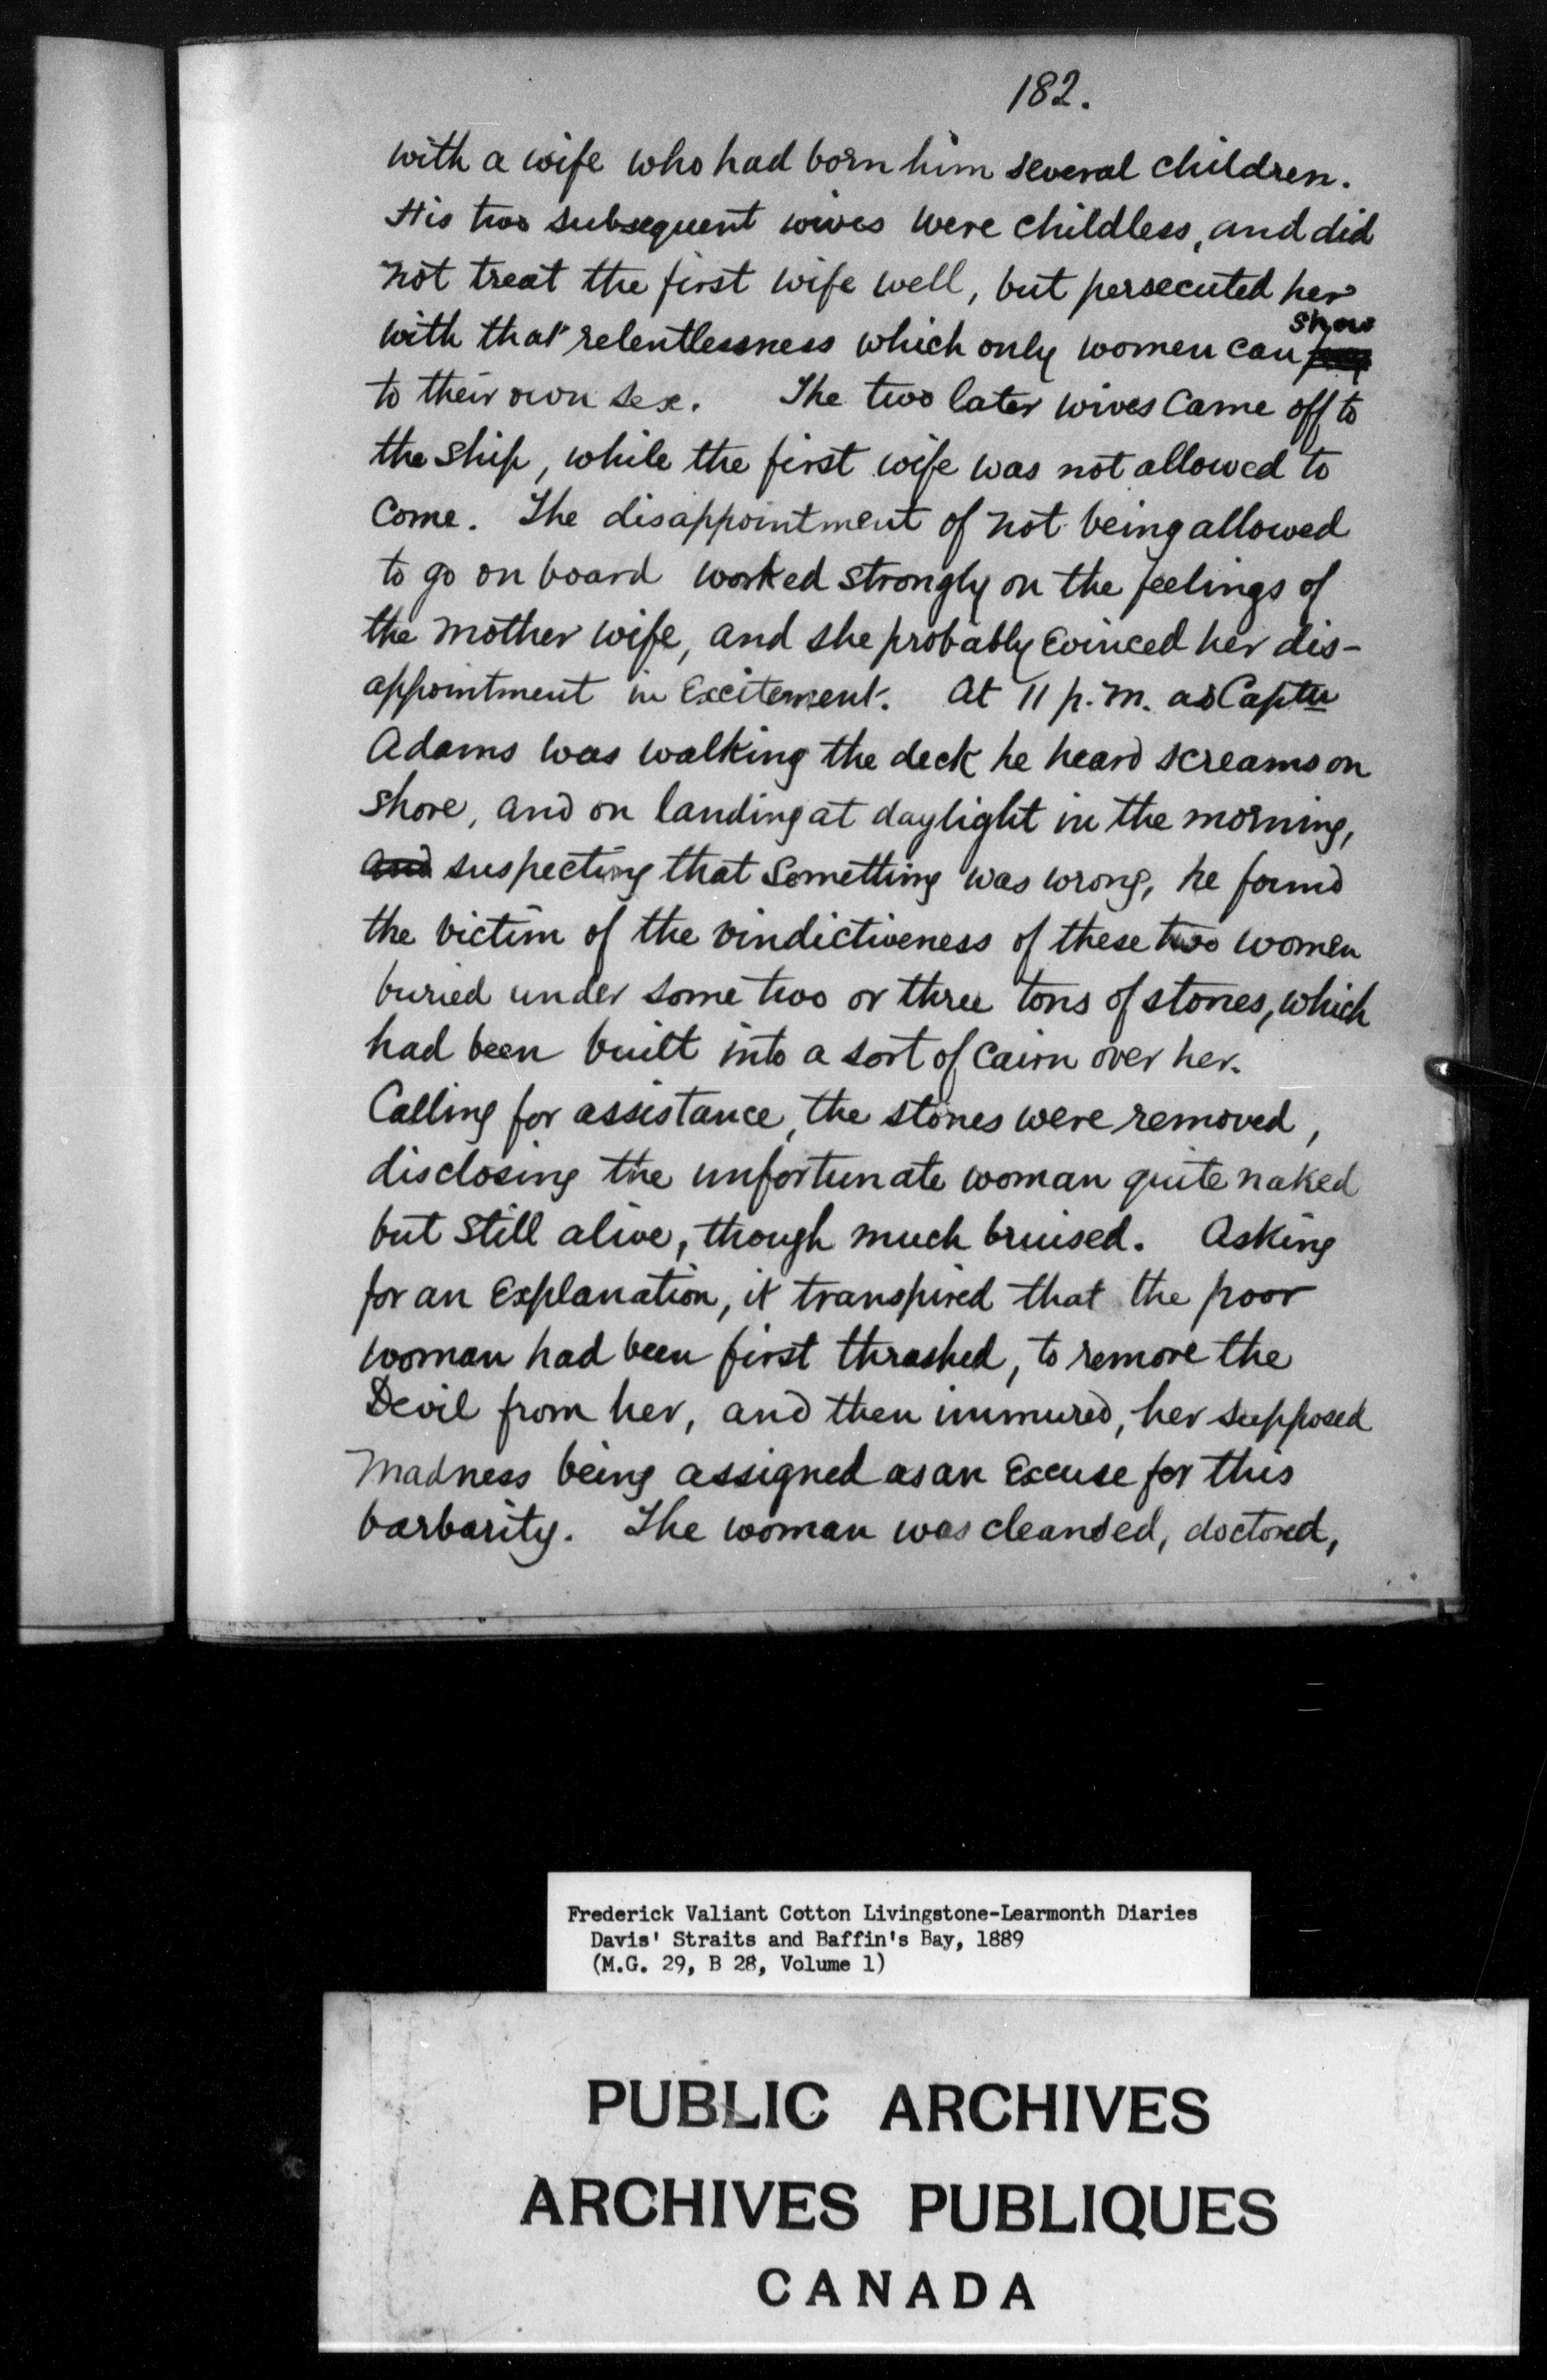 182.
with a wife who had born him several children.
His two subsequent wives were childless, and did
not treat the first wife well, but persecuted her
show
with that relentlessness which only women can
to their own sex. The two later wives came off to
the ship, while the first wife was not allowed to
come. The disappointment of not being allowed
to go on board worked strongly on the feelings of
the mother wife, and she probably evinced her dis-
appointment in excitement. At 11 p.m. as Captn
Adams was walking the deck he heard screams on
shore, and on landing at daylight in the morning,
and suspecting that something was wrong, he found
the victim of the vindictiveness of these two women
buried under some two or three tons of stones, which
had been built into a sort of cairn over her.
Calling for assistance, the stones were removed,
disclosing the unfortunate woman quite naked
but still alive, though much bruised. Asking
for an explanation, it transpired that the poor
woman had been first thrashed, to remove the
Devil from her, and then immured, her supposed
madness being assigned as an excuse for this
barbarity. The woman was cleansed, doctored,
Frederick Valiant Cotton Livingstone-Learmonth Diaries
Davis' Straits and Baffin's Bay, 1889
(M.G. 29, B 28, Volume 1)
PUBLIC ARCHIVES
ARCHIVES PUBLIQUES
CANADA